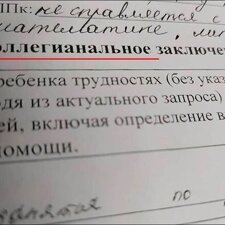 ППк: не справляется с
математике, ли
оллегианальное заключе
ребенка трудностях (без указ
одя из актуального запроса)
ей, включая определение в
помощи.
занятия по